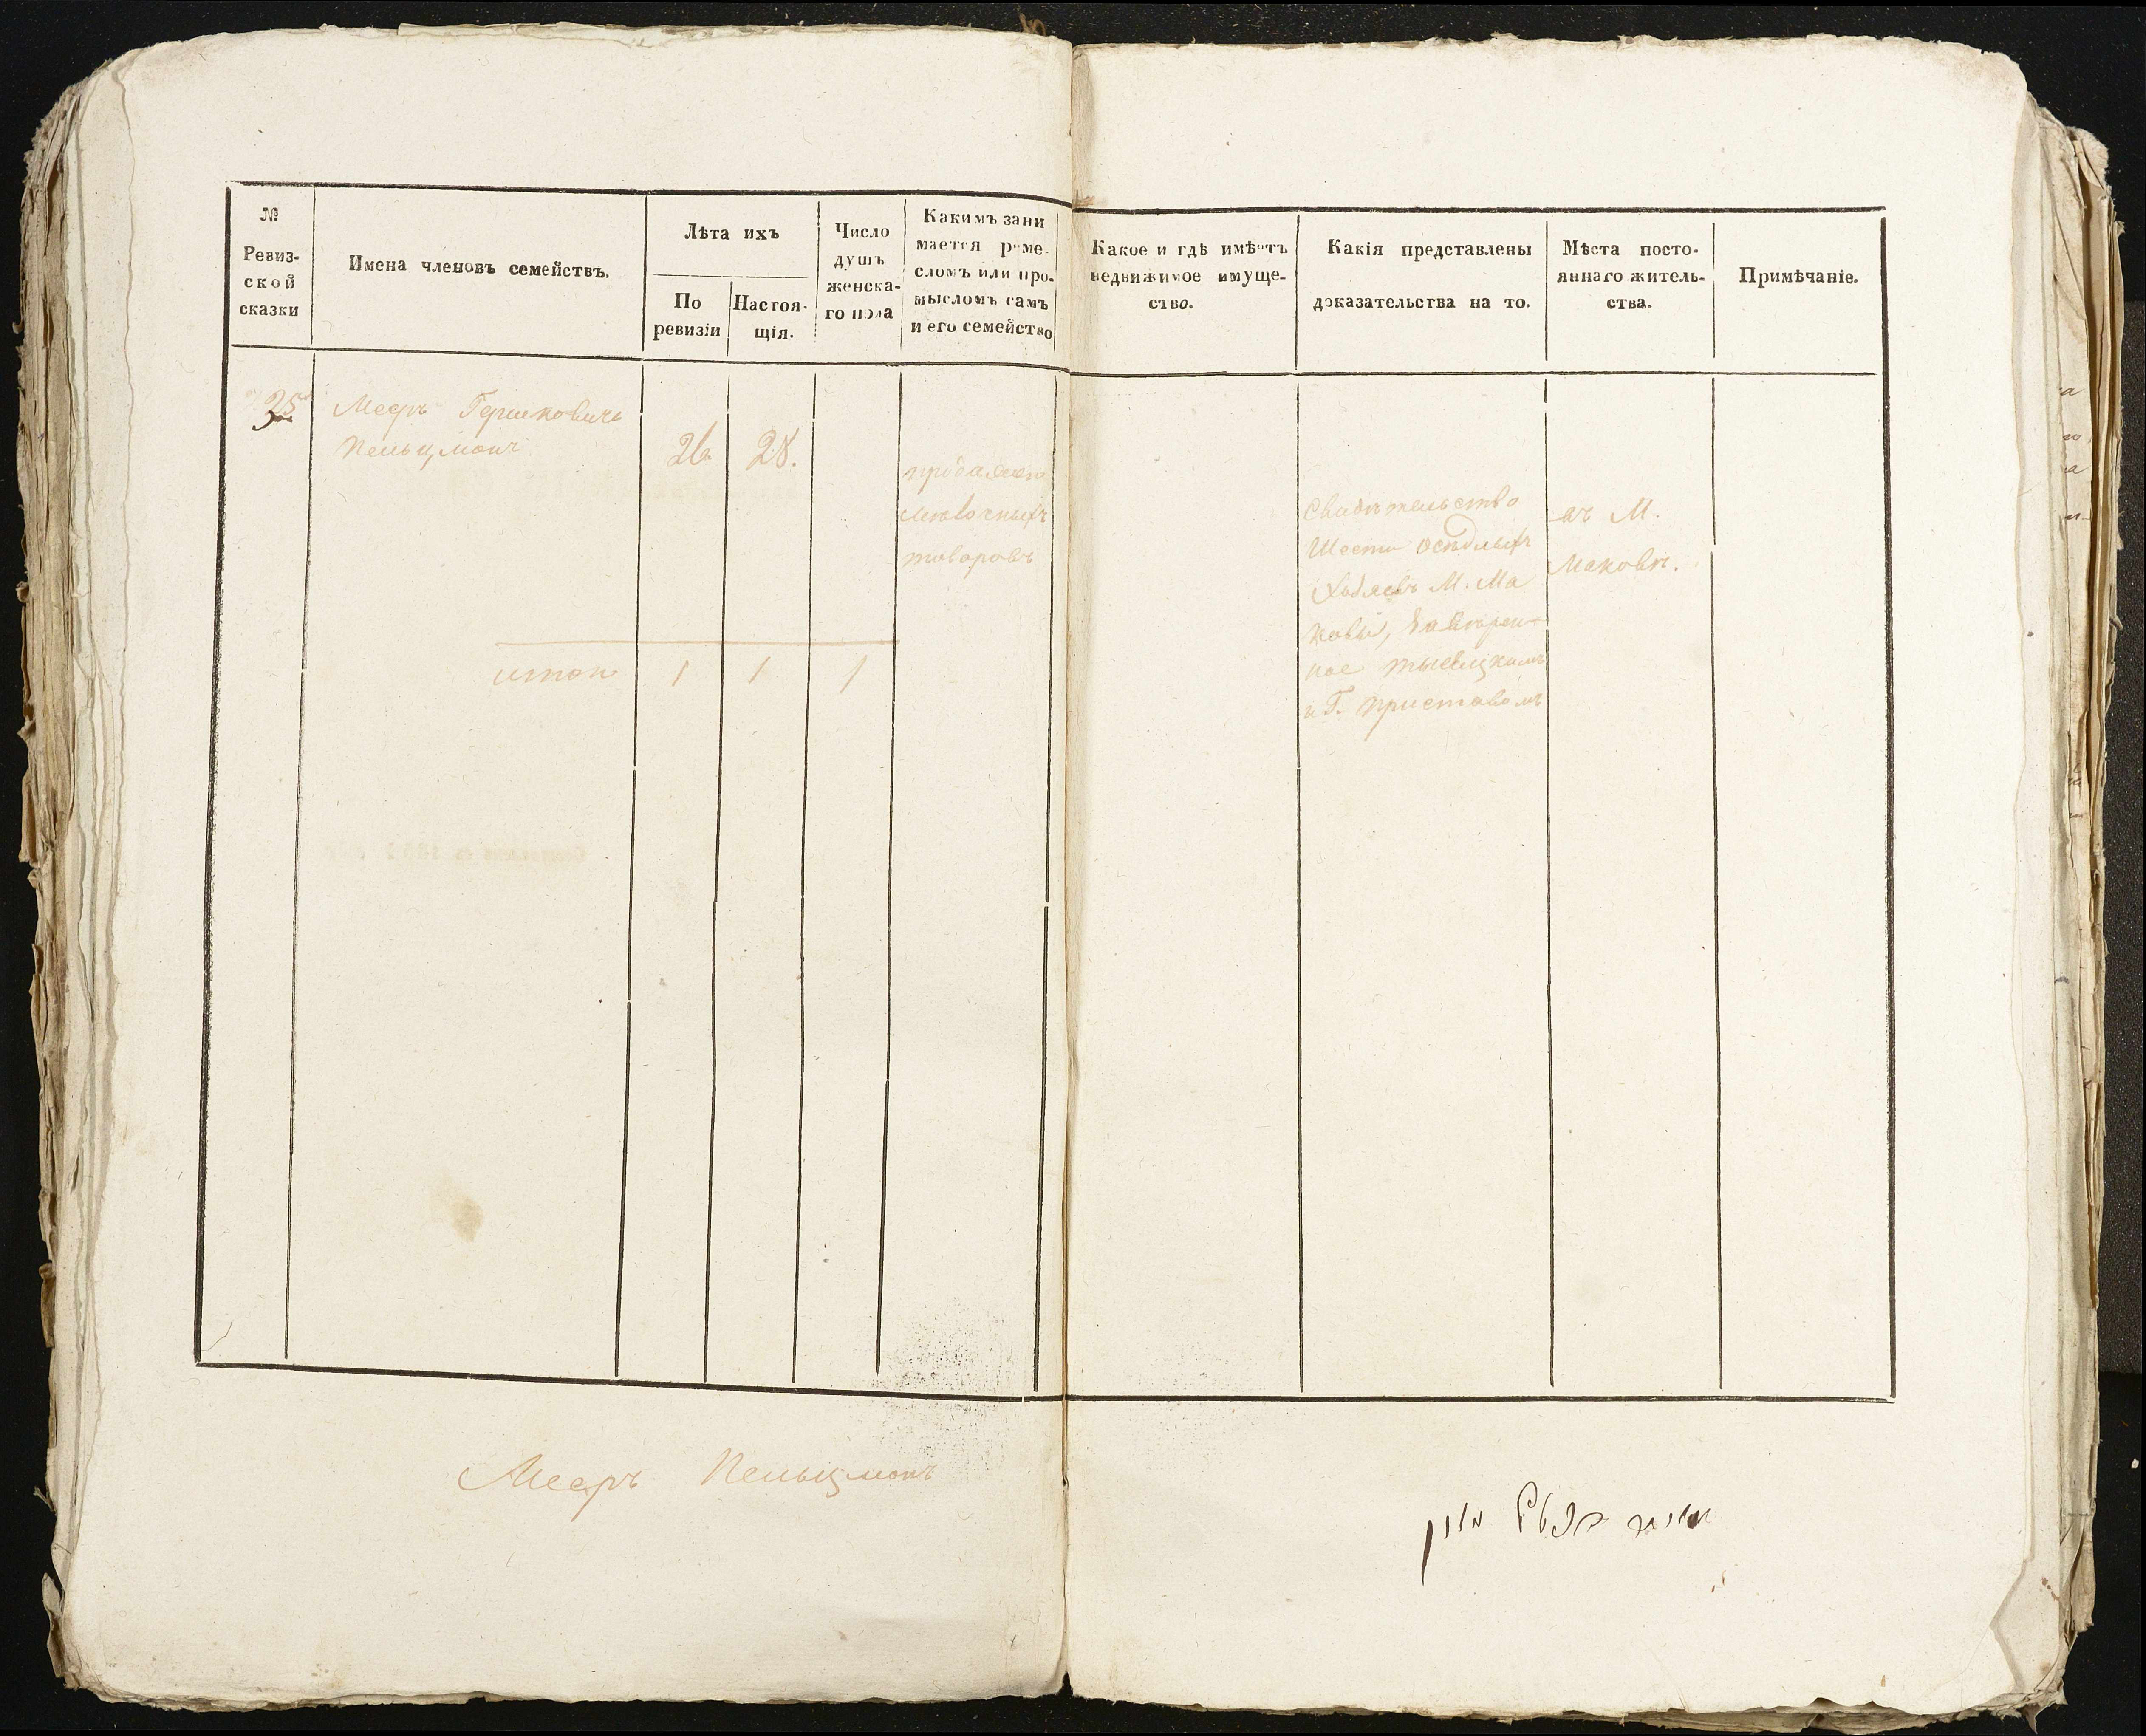 №
Ревиз-
ской
сказки
Имена членовъ семействъ.
Лѣта ихъ
По
ревизіи
Настоя-
щія.
Число
душъ
женска-
го пола
Какимъ зани
мается реме-
сломъ или про-
мысломъ самъ
и его семейство
Какое и гдѣ имѣетъ
недвижимое имуще-
ство.
Какія представлены
доказательства на то.
Мѣста посто-
яннаго житель-
ства.
Примѣчаніе.
35
Меэръ Гершковичъ
Пельцмонъ
26
28.
продажею
мелочныхъ
товаровъ
Свидѣтельство
Шести осѣдлыхъ
Хозяевъ М. Ма
ковы, Завѣрен-
ное
и Г. Приставомъ
въ М.
Маковѣ.
итого 1 1 1
Меэръ Пельцмонъ